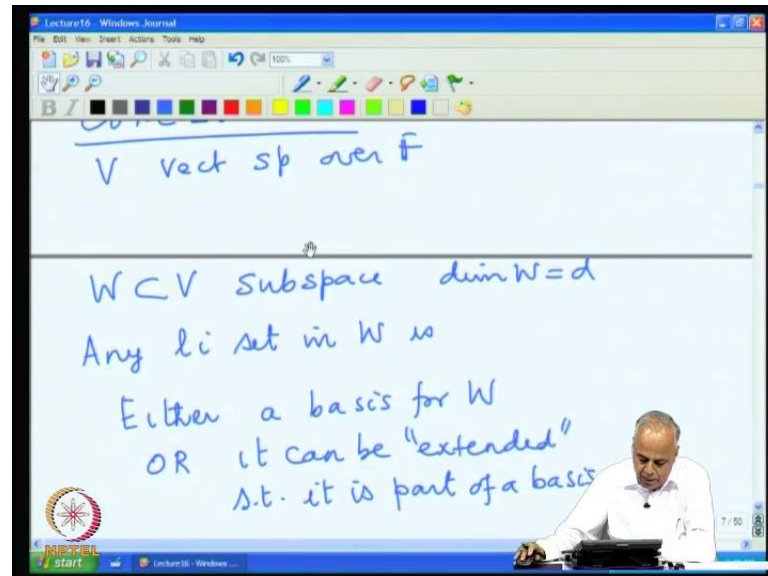 Lecture16 - Windows Journal
File Edit View Insert Actions Tools Help
100%
B I
V vect sp over F
W ⊂ V subspace dim W = d
Any li set in W is
Either a basis for W
OR it can be "extended"
s.t. it is part of a basis
7 / 50
NPTEL
start Lecture16 - Windows ...